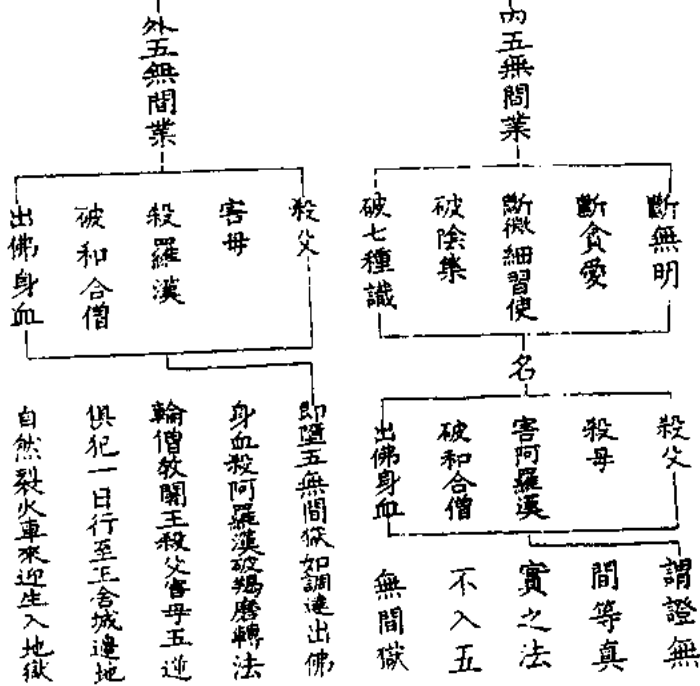 內五無間業
斷無明
斷貪愛
斷微細習使
破陰集
破七種識
名
殺父
殺母
害阿羅漢
破和合僧
出佛身血
謂證無
間等真
實之法
不入五
無間獄
外五無間業
殺父
害母
殺羅漢
破和合僧
出佛身血
即墮五無間獄如調達出佛
身血殺阿羅漢破羯磨轉法
輪僧教闍王殺父害母五逆
俱犯一日行至王舍城邊地
自然裂火車來迎生入地獄